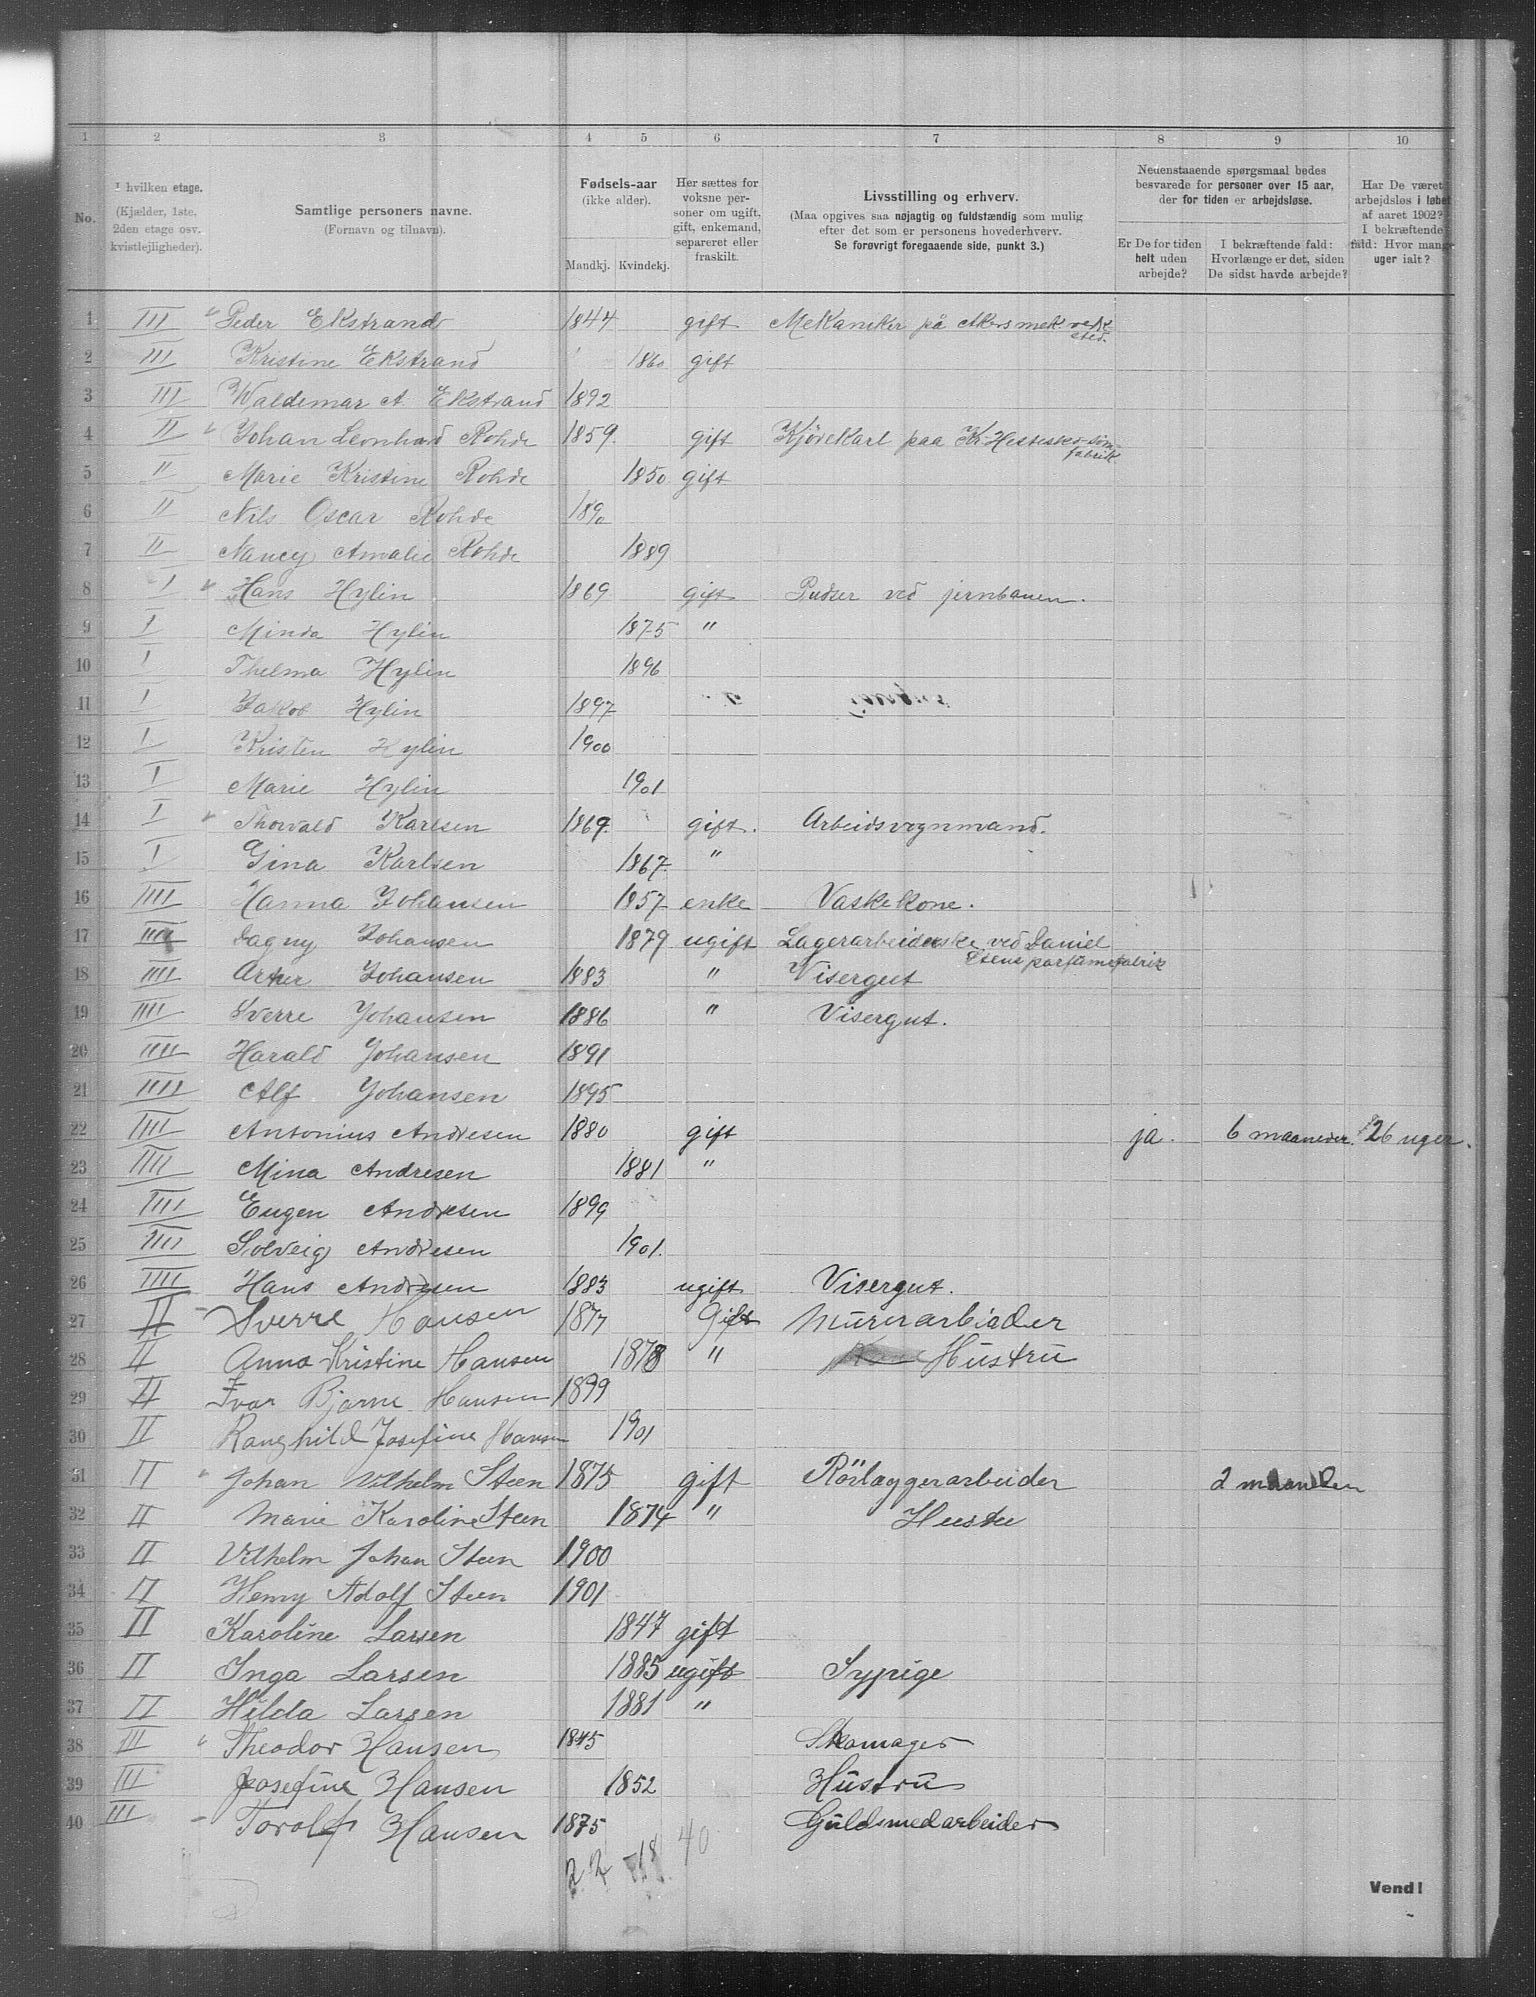 1 2 3 4 5 6 7 8 9 10
No.
I hvilken etage. (Kjælder, 1ste, 2den etage osv. kvistlejligheder).
Samtlige personers navne. (Fornavn og tilnavn).
Fødsels-aar (ikke alder). Mandkj. Kvindekj.
Her sættes for voksne personer om ugift, gift, enkemand, separeret eller fraskilt.
Livsstilling og erhverv. (Maa opgives saa nøjagtig og fuldstændig som mulig efter det som er personens hovederhverv. Se forøvrigt foregaaende side, punkt 3.)
Nedenstaaende spørgsmaal bedes besvarede for personer over 15 aar, der for tiden er arbejdsløse.
Er De for tiden helt uden arbejde?
I bekræftende fald: Hvorlænge er det, siden De sidst havde arbejde?
Har De været arbejdsløs i løbet af aaret 1902? I bekræftende fald: Hvor mange uger ialt?
1 III Peder Ekstrand 1844 gift Mekaniker på Akers mek verksted.
2 III Kristine Ekstrand 1860 gift
3 III Waldemar A. Ekstrand 1892
4 II Johan Leonhard Rohde 1859 gift Kjørekarl paa Kr. Hestesko-sømfabrik
5 II Marie Kristine Rohde 1850 gift
6 II Nils Oscar Rohde 1890
7 II Nancy Amalie Rohde 1889
8 I Hans Hylin 1869 gift Pudser ved jernbanen.
9 I Minda Hylin 1875 "
10 I Thelma Hylin 1896
11 I Jakob Hylin 1897
12 I Kristen Hylin 1900
13 I Marie Hylin 1901
14 I Thorvald Karlsen 1869 gift. Arbeidsvognmand.
15 I Gina Karlsen 1867 "
16 IIII Hanna Johansen 1857 enke Vaskekone.
17 IIII Dagny Johansen 1879 ugift Lagerarbeiderske ved Daniel Steens parfumefabrik
18 IIII Arther Johansen 1883 " Visergut
19 IIII Sverre Johansen 1886 " Visergut.
20 IIII Harald Johansen 1891
21 IIII Alf Johansen 1895
22 IIII Antonius Andresen 1880 gift ja. 6 maaneder. 26 uger.
23 IIII Mina Andresen 1881 "
24 IIII Eugen Andresen 1899
25 IIII Solveig Andresen 1901.
26 IIII Hans Andresen 1883 ugift Visergut.
27 II Sverre Hansen 1877 Gift Murerarbeider
28 II Anna Kristine Hansen 1878 " Hustru
29 II Ivar Bjarne Hansen 1899
30 II Ranghild Josefine Hansen 1901
31 II Johan Vilhelm Steen 1875 gift Rörlæggerarbeider 2 maaneden
32 II Marie Karoline Steen 1874 " Hustu
33 II Vilhelm Johan Steen 1900
34 II Henry Adolf Steen 1901
35 II Karoline Larsen 1847 gift
36 II Inga Larsen 1885 ugift Sypige
37 II Hilda Larsen 1881 "
38 III Theodor Hansen 1845 Skomager
39 III Josefine Hansen 1852 Hustru
40 III Torolf Hansen 1875 Guldsmedarbeider
22 18 40
Vend!